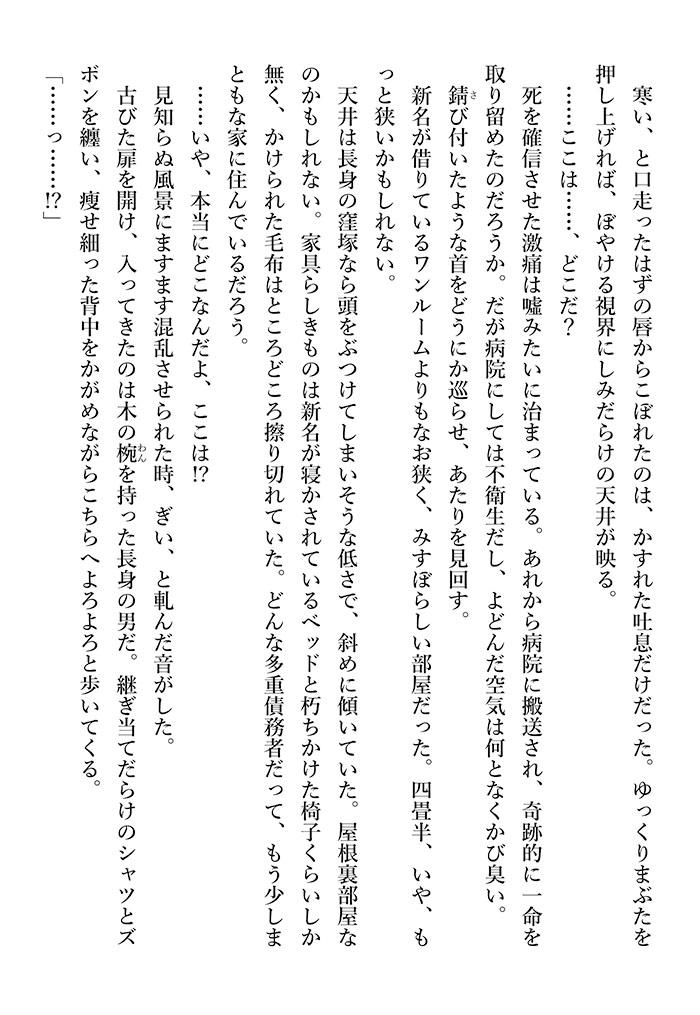 寒い、と口走ったはずの唇からこぼれたのは、かすれた吐息だけだった。ゆっくりまぶたを
押し上げれば、ぼやける視界にしみだらけの天井が映る。
……ここは……、どこだ？
死を確信させた激痛は嘘みたいに治まっている。あれから病院に搬送され、奇跡的に一命を
取り留めたのだろうか。だが病院にしては不衛生だし、よどんだ空気は何となくかび臭い。
錆び付いたような首をどうにか巡らせ、あたりを見回す。
新名が借りているワンルームよりもなお狭く、みすぼらしい部屋だった。四畳半、いや、も
っと狭いかもしれない。
天井は長身の窪塚なら頭をぶつけてしまいそうな低さで、斜めに傾いていた。屋根裏部屋な
のかもしれない。家具らしきものは新名が寝かされているベッドと朽ちかけた椅子くらいしか
無く、かけられた毛布はところどころ擦り切れていた。どんな多重債務者だって、もう少しま
ともな家に住んでいるだろう。
……いや、本当にどこなんだよ、ここは!?
見知らぬ風景にますます混乱させられた時、ぎい、と軋んだ音がした。
古びた扉を開け、入ってきたのは木の椀を持った長身の男だ。継ぎ当てだらけのシャツとズ
ボンを纏い、痩せ細った背中をかがめながらこちらへよろよろと歩いてくる。
「……っ……!?」